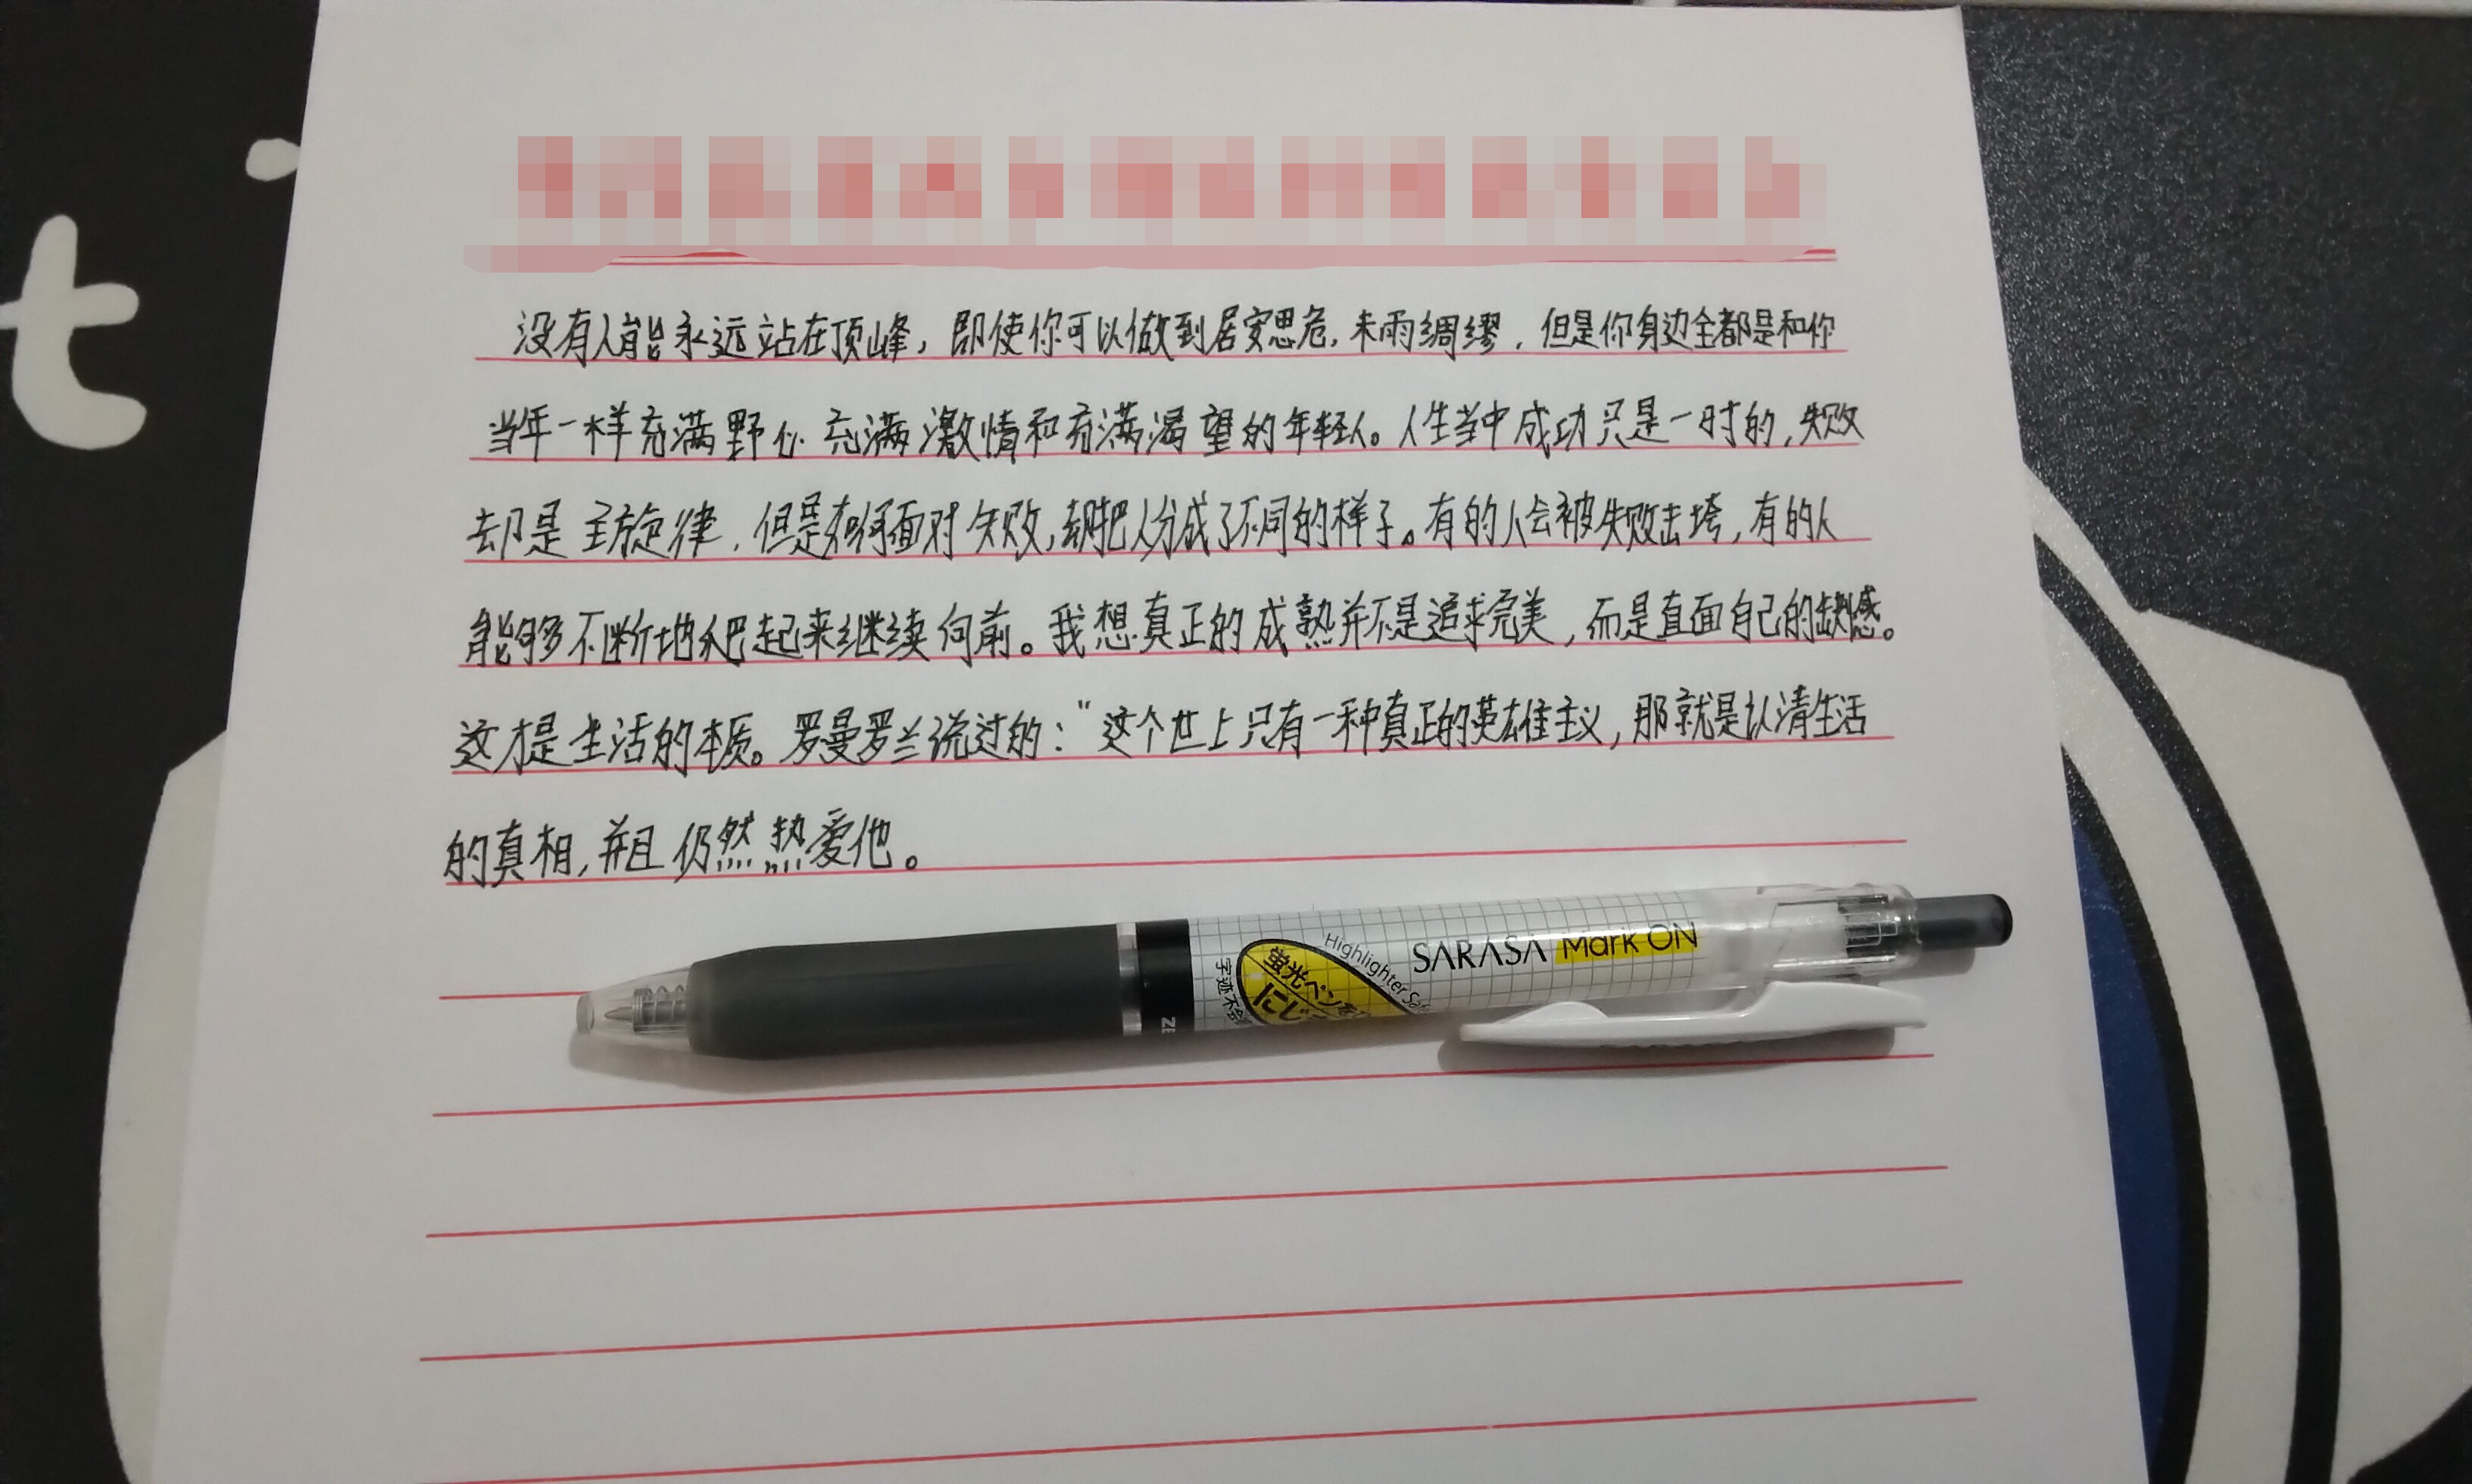 没有人能永远站在顶峰，即使你可以做到居安思危，未雨绸缪，但是你身边全都是和你
当年一样充满野心 充满激情和充满渴望的年轻人。人生当中成功只是一时的，失败
却是主旋律，但是如何面对失败，却把人分成了不同的样子。有的人会被失败击垮，有的人
能够不断地爬起来继续向前。我想真正的成熟并不是追求完美，而是直面自己的缺憾。
这才是生活的本质。罗曼罗兰说过的：“这个世上只有一种真正的英雄主义，那就是认清生活
的真相，并且仍然热爱他。
SARASA Mark ON
Highlighter Saf
蛍光ペン
にじ
字迹不会
t